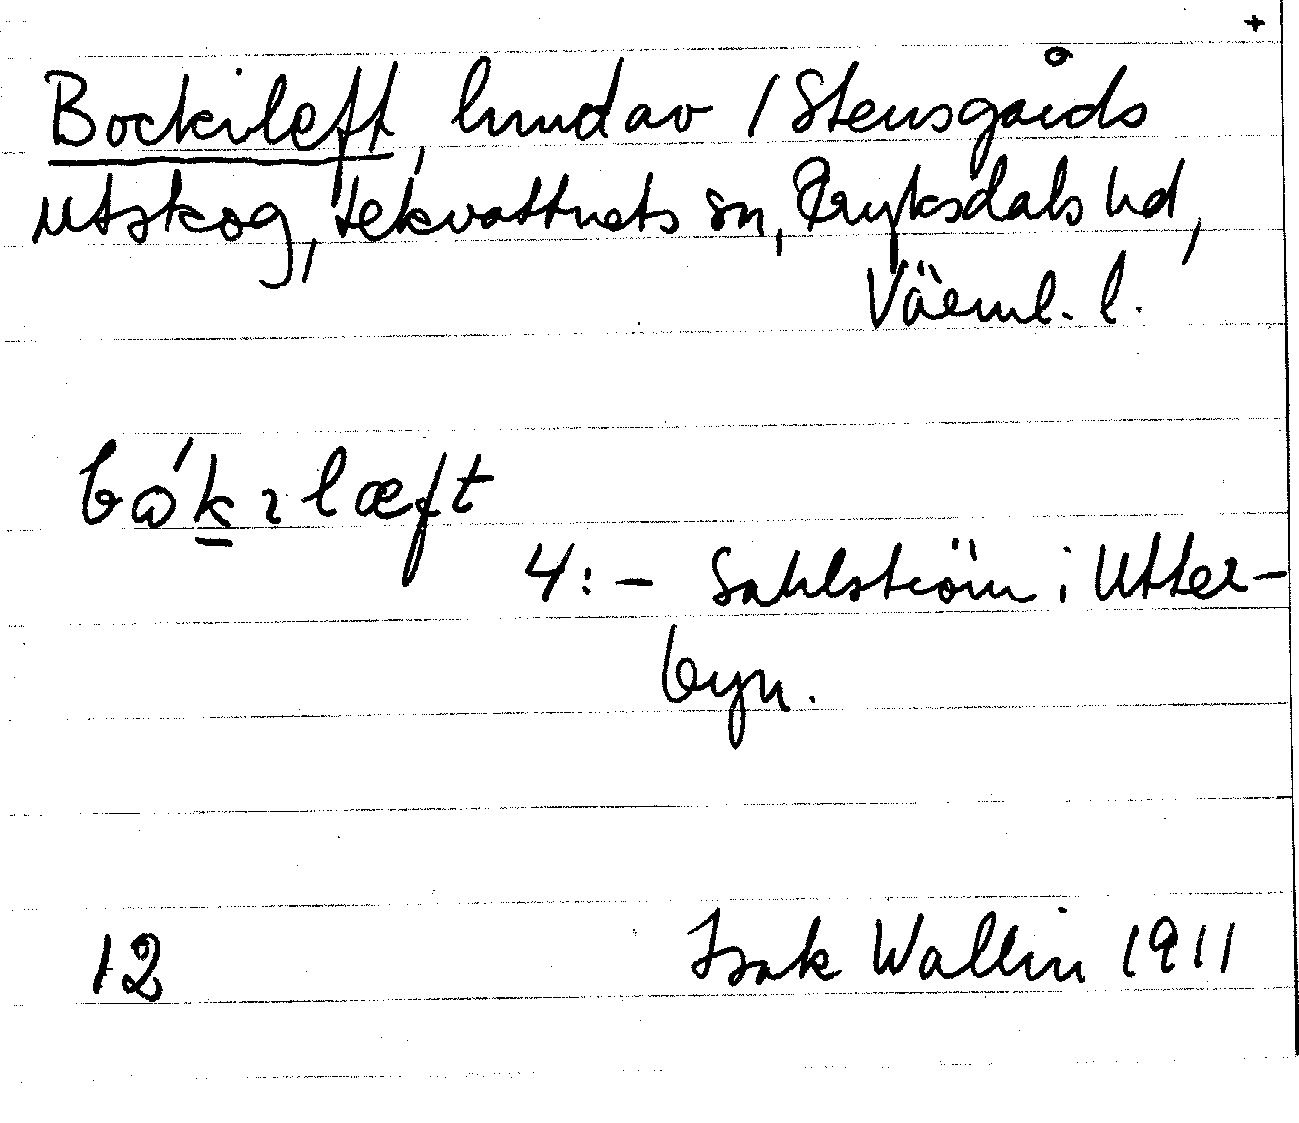 +
Bockileft, hmd av / Stensgårds
utskog, Lekvattnets sn, Fryksdals hd,
Värml. l.
bɷ́kılæft
4:– Sahlström i Utter-
byn.
12 Isak Wallin 1911